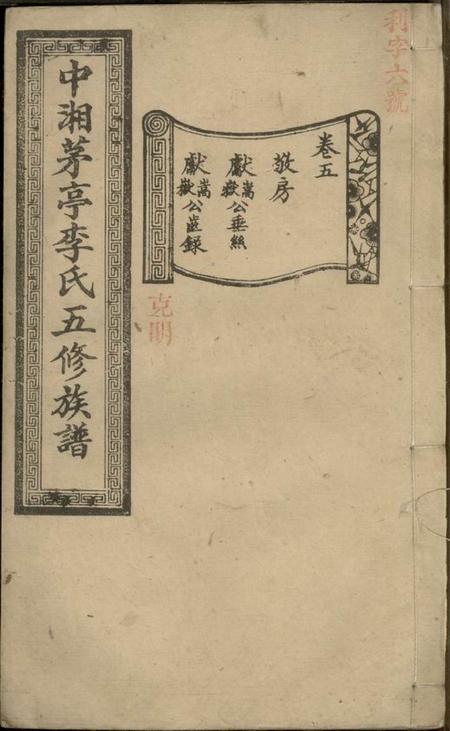 利字六號
卷五
敬房
獻嵩嶽公垂絲
獻嵩嶽公齒錄
克明
中湘茅亭李氏五修族譜